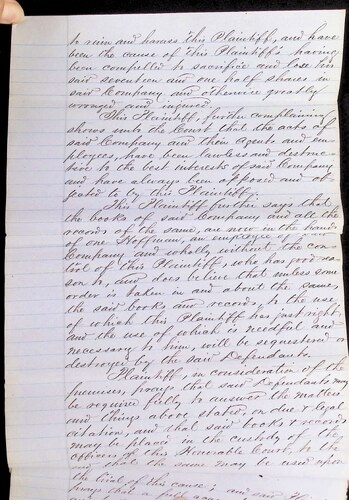 to ruin and harass this Plaintiff, and have
been the cause of this Plaintiff's having
been compelled to sacrifice and lose his
said seventeen and one half shares in
said Company and otherwise greatly
wronged and injured.
This Plaintiff, further complaining
shows unto the Court that the acts of
said Company and their agents and em-
ployees, have been lawless and destruc-
tive to the best interests of said Company
and have always been opposed and ob
jected to by this Plaintiff.
This Plaintiff further says that
the books of said Company and all the
records of the same, are now in the hands
of one Hoffman, an employee of
Company and wholly without the con-
trol of this Plaintiff, who has good rea-
son to, and does believe that unless some
order is taken in and about the same,
the said books and records, to the use
of which this Plaintiff has just right,
and the use of which is needful and
necessary to him, will be sequestered or
destroyed by the said Defendants.
Plaintiff, in consideration of the
premises, prays that said Defendants may
be required fully to answer the matters
and things above stated, on due & legal
citation, and that said books & records
may be placed in the custody of the
officers of this Honorable Court, to the
end that the same may be used upon
the trial of this cause; and
prays that a full